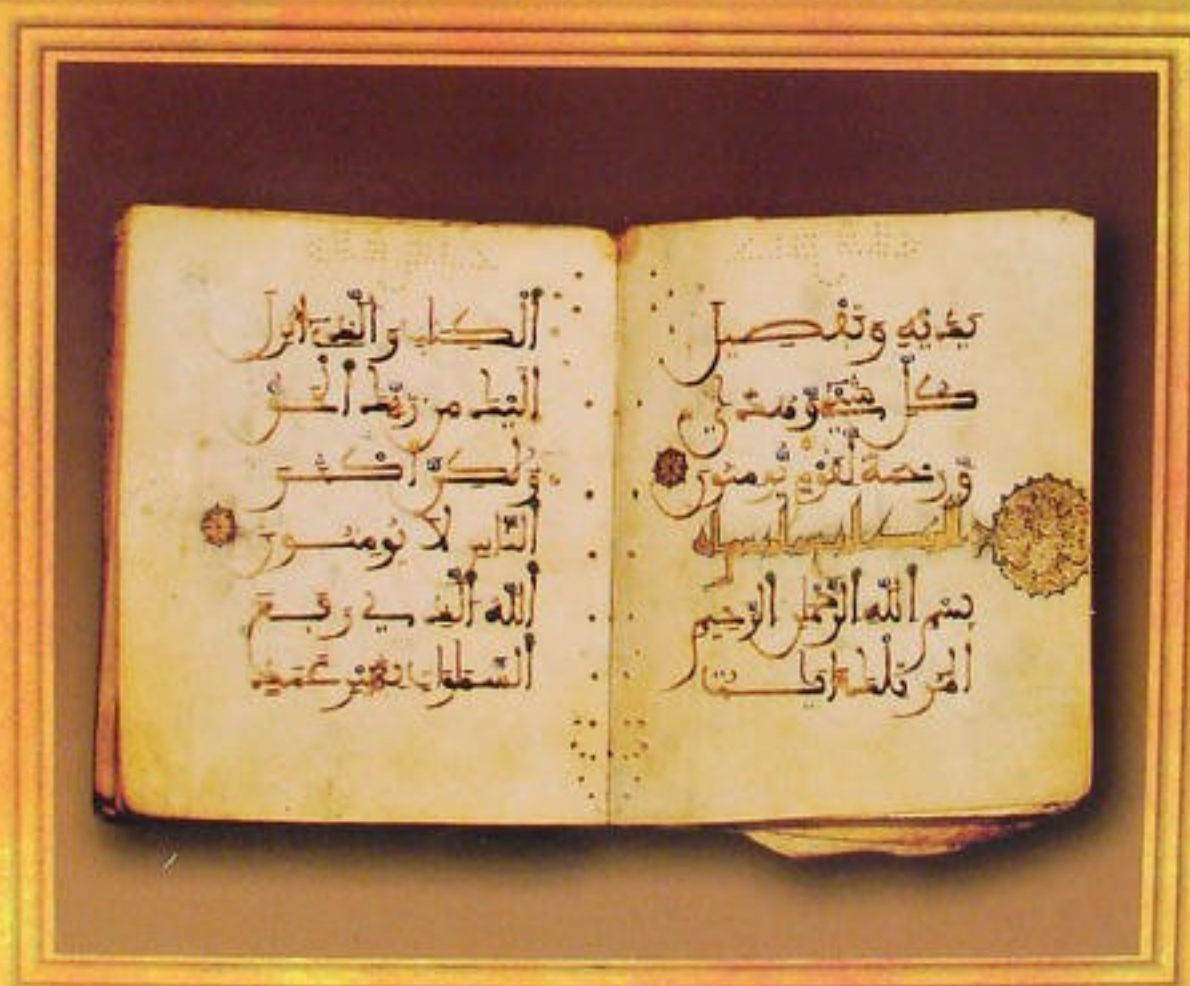 يَدَيْهِ وَتَفْصِيلَ
كُلِّ شَيْءٍ وَهُدًى
وَرَحْمَةً لِّقَوْمٍ يُومِنُونَ
بِسْمِ اللَّهِ الرَّحْمَٰنِ الرَّحِيمِ
الَمِّر تِلْكَ ءَايَٰتُ
الْكِتَٰبِ وَالَّذِي أُنزِلَ
إِلَيْكَ مِن رَّبِّكَ الْحَقُّ
وَلَٰكِنَّ أَكْثَرَ
النَّاسِ لَا يُومِنُونَ
اللَّهُ الَّذِي رَفَعَ
السَّمَٰوَٰتِ بِغَيْرِ عَمَدٍ